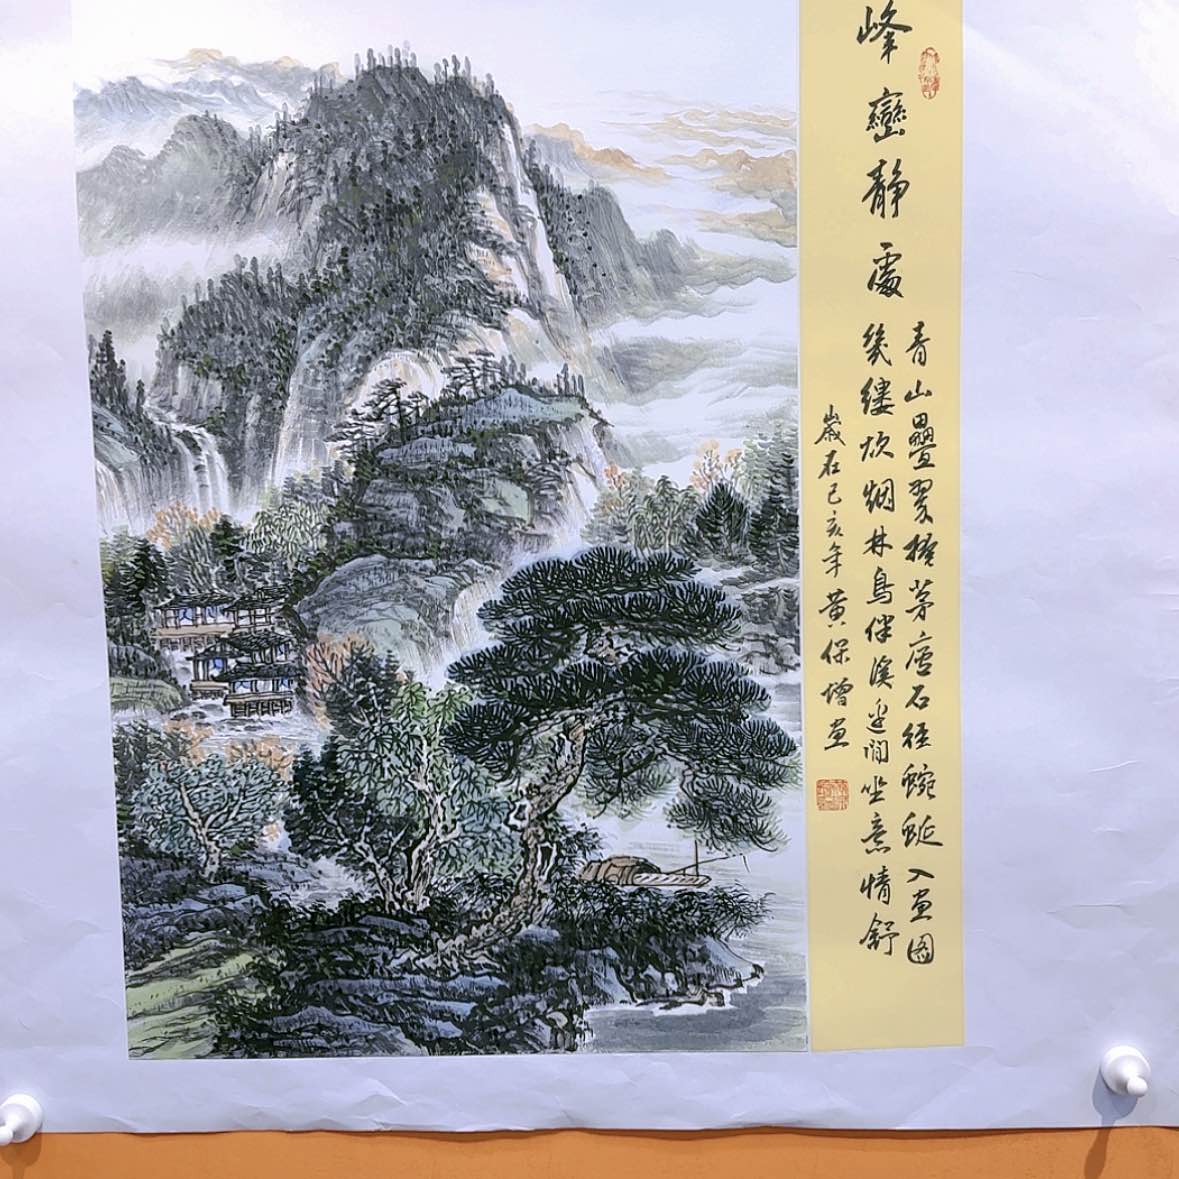 峰巒静處
青山疊翠擁茅廬石径蜿蜒入画图
幾缕炊烟林鳥伴溪边閒坐意情舒
歲在己亥年黄保增画